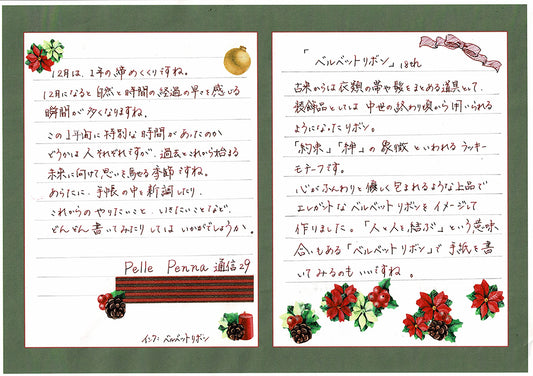 12月は、1年の締めくくりですね。
12月になると自然と時間の経過の早さを感じる
瞬間が多くなりますね。
この1年間に特別な時間があったのか
どうかは人それぞれですが、過去とこれから始まる
未来に向けて思いを馳せる季節ですね。
あらたに、手帳の中を新調したり、
これからのやりたいこと、いきたいことなど、
どんどん書いてみたりしてはいかがでしょうか。
Pelle Penna 通信29
インク: ベルベットリボン
「ベルベットリボン」18th
古来からは衣類の帯や髪をまとめる道具として、
装飾品としては中世の終わり頃から用いられる
ようになったリボン。
「約束」「神」の象徴といわれるラッキー
モチーフです。
心がふんわりと優しく包まれるような上品で
エレガントなベルベットリボンをイメージして
作りました。「人と人を結ぶ」という意味
合いもある「ベルベットリボン」で手紙を書
いてみるのもいいですね。